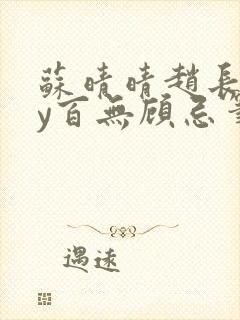 蘇晴晴趙長
y百無顧忌
遇遠